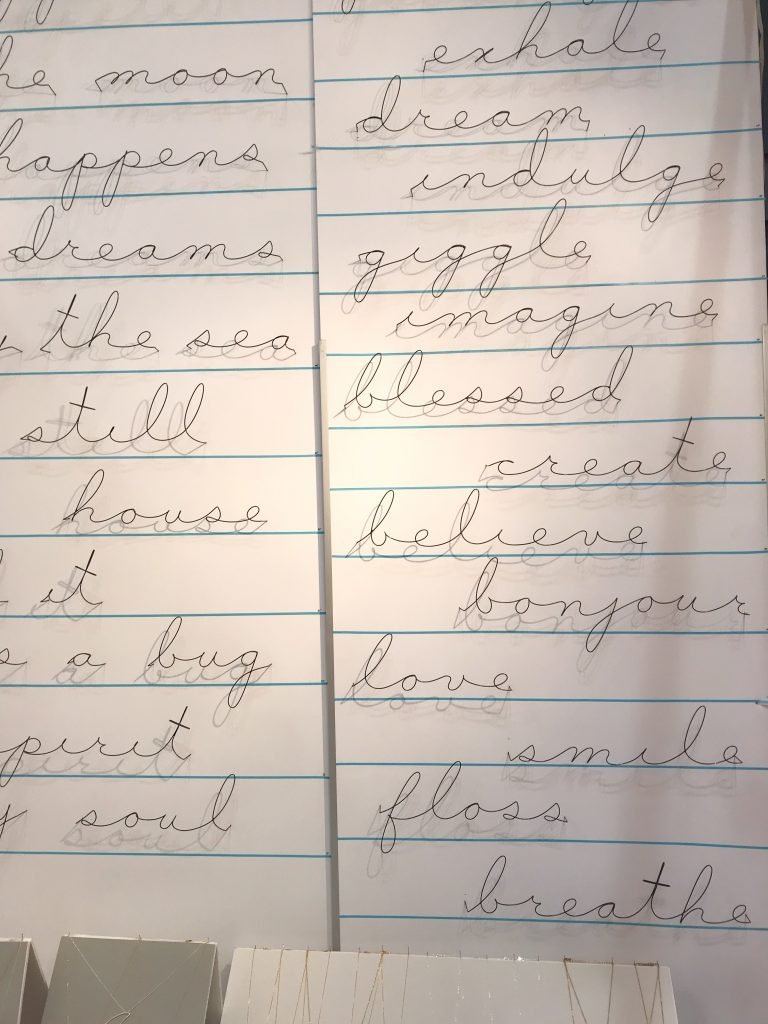 the moon
happens
dreams
the sea
still
house
it
a bug
spirit
soul
exhale
dream
indulge
giggle
imagine
blessed
create
believe
bonjour
love
smile
floss
breathe